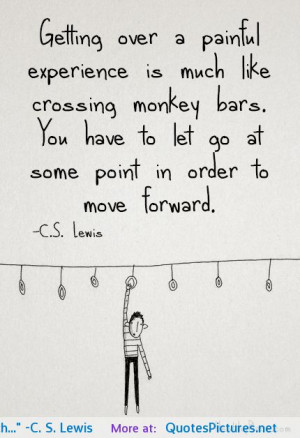 Getting over a painful
experience is much like
crossing monkey bars.
You have to let go at
some point in order to
move forward.
-C.S. Lewis
h..." -C. S. Lewis More at: QuotesPictures.net